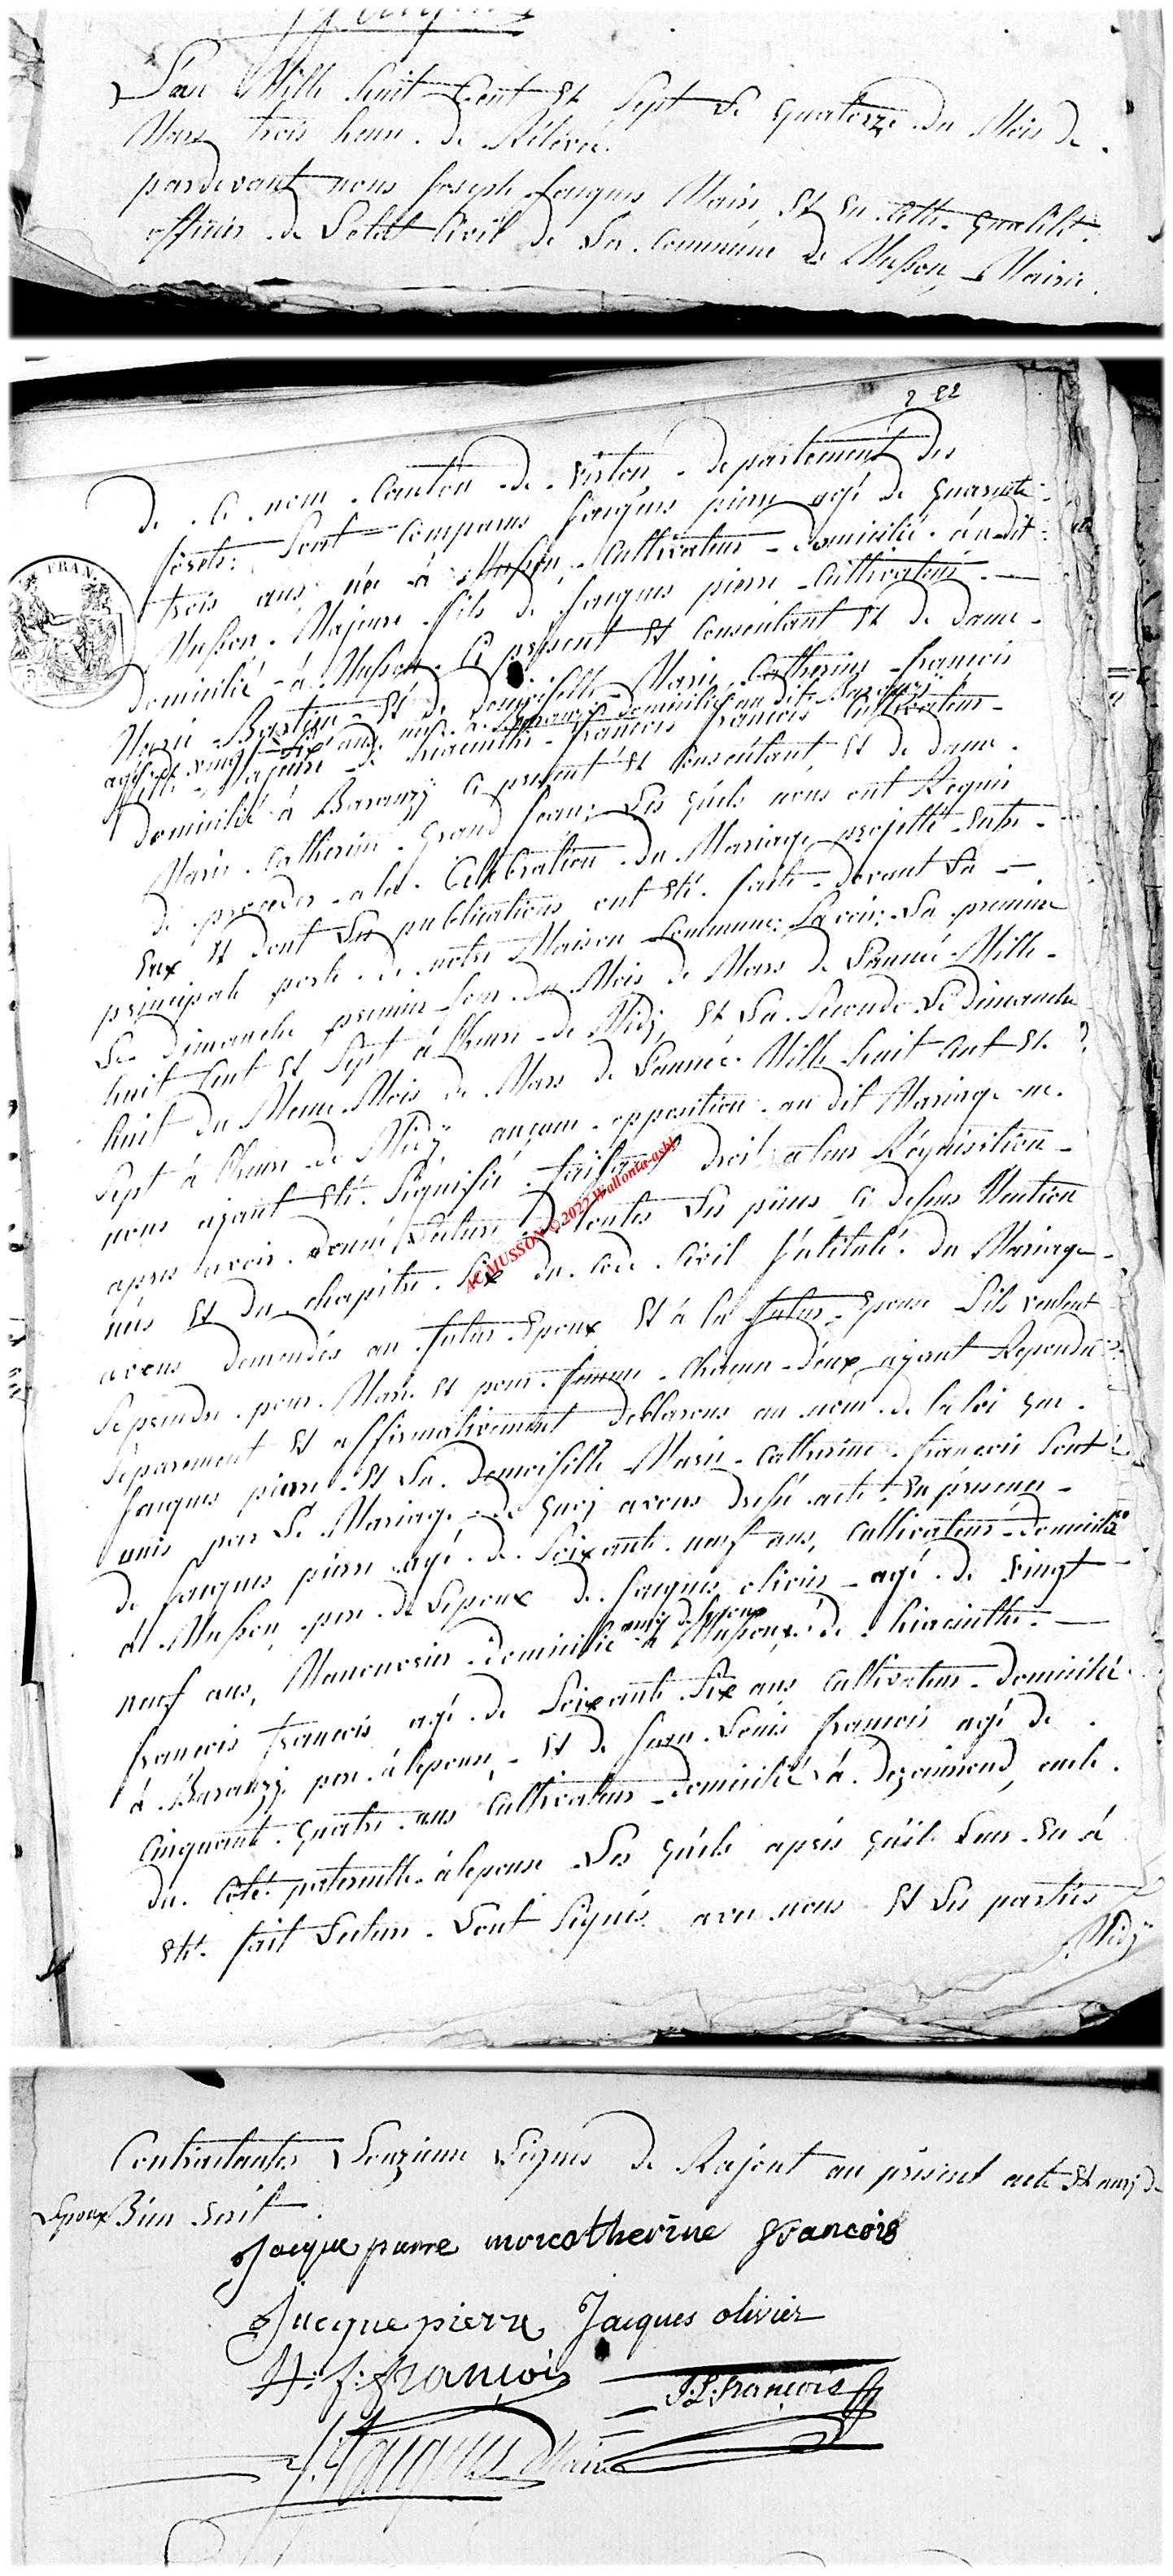 L'an Mille huit Cent Et Sept Le quatorze du Mois de
Mars trois heure de Rélévé.
pardevant nous Joseph Jacques Maire, Et En cette qualité
officier de L'etat Civil de La Commune de Musson, Mairie
de ce nom Canton de virton, departement des
forêts: Sont Comparus Jacques pierre agé de quarante
trois ans née à Musson, Cultivateur domicilié audit
Musson Majeure fils de Jacques pierre Cultivateur
domicilié à Musson Ci present Et Consentant Et de dame
Marie Bastien Et de demoiselle Marie Catherine francois
agée de vingt Six ans née à Baranzy domiciliée au dite Baranzy
fille Majeure de hiacinthe francois francois Cultivateur
domicilié à Baranzÿ Ci present Et Consentant Et de dame
Marie Catherine Grand Jean; Les quels nous ont Requis
de proceder a la Célébration du Mariage projetté Entre
Eux Et dont Les publications ont Eté faite devant La
principale porte de notre Maison Commune; Savoir; La premiere
Le dimanche premier Jour du Mois de Mars de L'année Mille
huit Cent Et Sept à l'heure de Midi, Et La Seconde Le dimanche
huit du Meme Mois de Mars de L'année Mille huit Cent Et
Sept à l'heure de Midÿ aucune opposition au dit Mariage ne
nous ayant Eté Signifié faisant droit a leur Réquisition
apres avoir donné Lecture de toutes Les pieces Ci dessus Mention
nées Et du chapitre Six du Code Civil Intitulé du Mariage
avons demandés au futur Epoux Et à la future Epouse S'ils veulent
Se prendre pour Mari Et pour femme chacun d'eux ayant Repondu
Séparement Et affirmativement declarons au nom de la loi que
Jacques pierre Et La demoiselle Marie Catherine francois Sont
unis par Le Mariage de quoi avons dressé acte En présence
de Jacques pierre agé de Soixante neuf ans, Cultivateur domicilié
à Musson pere de L'epoux de Jacques olivier agé de vingt
amis de l'epoux
neuf ans, Manouvrier domicilié à Musson, de hiacinthe
francois francois agé de Soixante Six ans Cultivateur domicilié
à Baranzÿ pere à lepouse, Et de Jean Louis francois agé de
Cinquante quatre ans Cultivateur domicilié à, oncle
du Côté paternelle à lepouse Les quels après qu'il Leur En à
Eté fait Lecture Sont Signés avec nous Et Les parties
Contractantes Signes de Rajout au présent acte Et ami de
L'epoux Bien Ecrit
Jacque pierre marcatherine francois
Jacque pierre Jacques olivier
H: f: françois J: L: françois
J: Jacques Maire
AC MUSSON © 2022 Wallonia-asbl